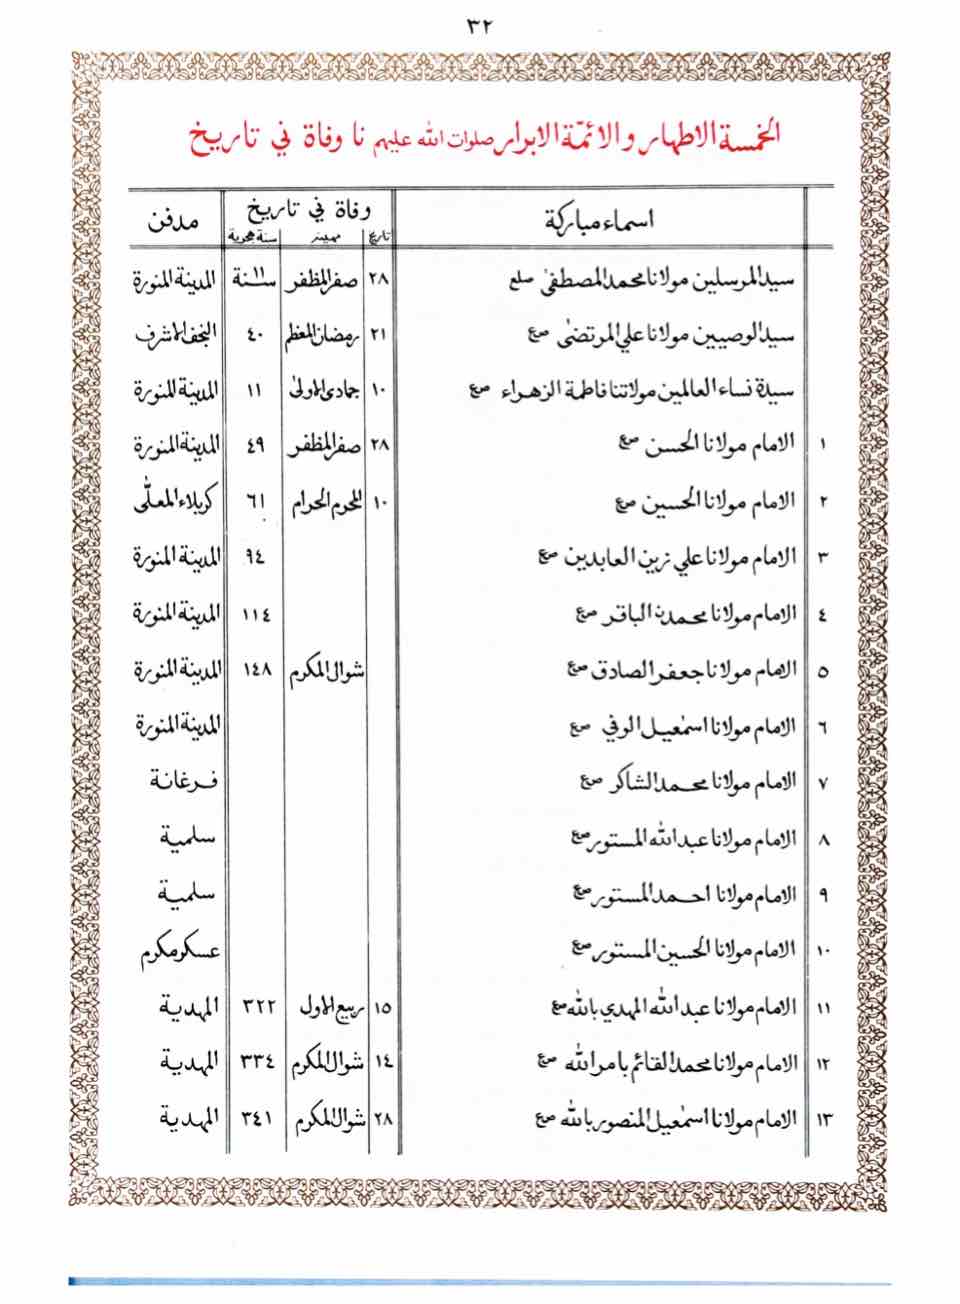 ٣٢
الخمسة الاطهار والائمّة الابرار صلوات الله عليهم نا وفاة ني تاريخ
اسماء مباركة وفاة ني تاريخ مدفن
تاريخ مهينه سنة هجرية
سيد المرسلين مولانا محمد المصطفىٰ صلع ٢٨ صفر المظفر سنة ١١ المدينة المنورة
سيد الوصيين مولانا علي المرتضىٰ صع ٢١ رمضان المعظم ٤٠ النجف الاشرف
سيدة نساء العالمين مولاتنا فاطمة الزهراء صع ١٠ جمادى الاولىٰ ١١ المدينة المنورة
١ الامام مولانا الحسن صع ٢٨ صفر المظفر ٤٩ المدينة المنورة
٢ الامام مولانا الحسين صع ١٠ المحرم الحرام ٦١ كربلاء المعلّى
٣ الامام مولانا علي زين العابدين صع ٩٤ المدينة المنورة
٤ الامام مولانا محمد ن الباقر صع ١١٤ المدينة المنورة
٥ الامام مولانا جعفر الصادق صع شوال المكرم ١٤٨ المدينة المنورة
٦ الامام مولانا اسمٰعيل الوفي صع المدينة المنورة
٧ الامام مولانا محمد الشاكر صع فرغانة
٨ الامام مولانا عبد الله المستور صع سلمية
٩ الامام مولانا احمد المستور صع سلمية
١٠ الامام مولانا الحسين المستور صع عسكر مكرم
١١ الامام مولانا عبد الله المهدي بالله صع ١٥ ربيع الاول ٣٢٢ المهدية
١٢ الامام مولانا محمد القائم بامر الله صع ١٤ شوال المكرم ٣٣٤ المهدية
١٣ الامام مولانا اسمٰعيل المنصور بالله صع ٢٨ شوال المكرم ٣٤١ المهدية